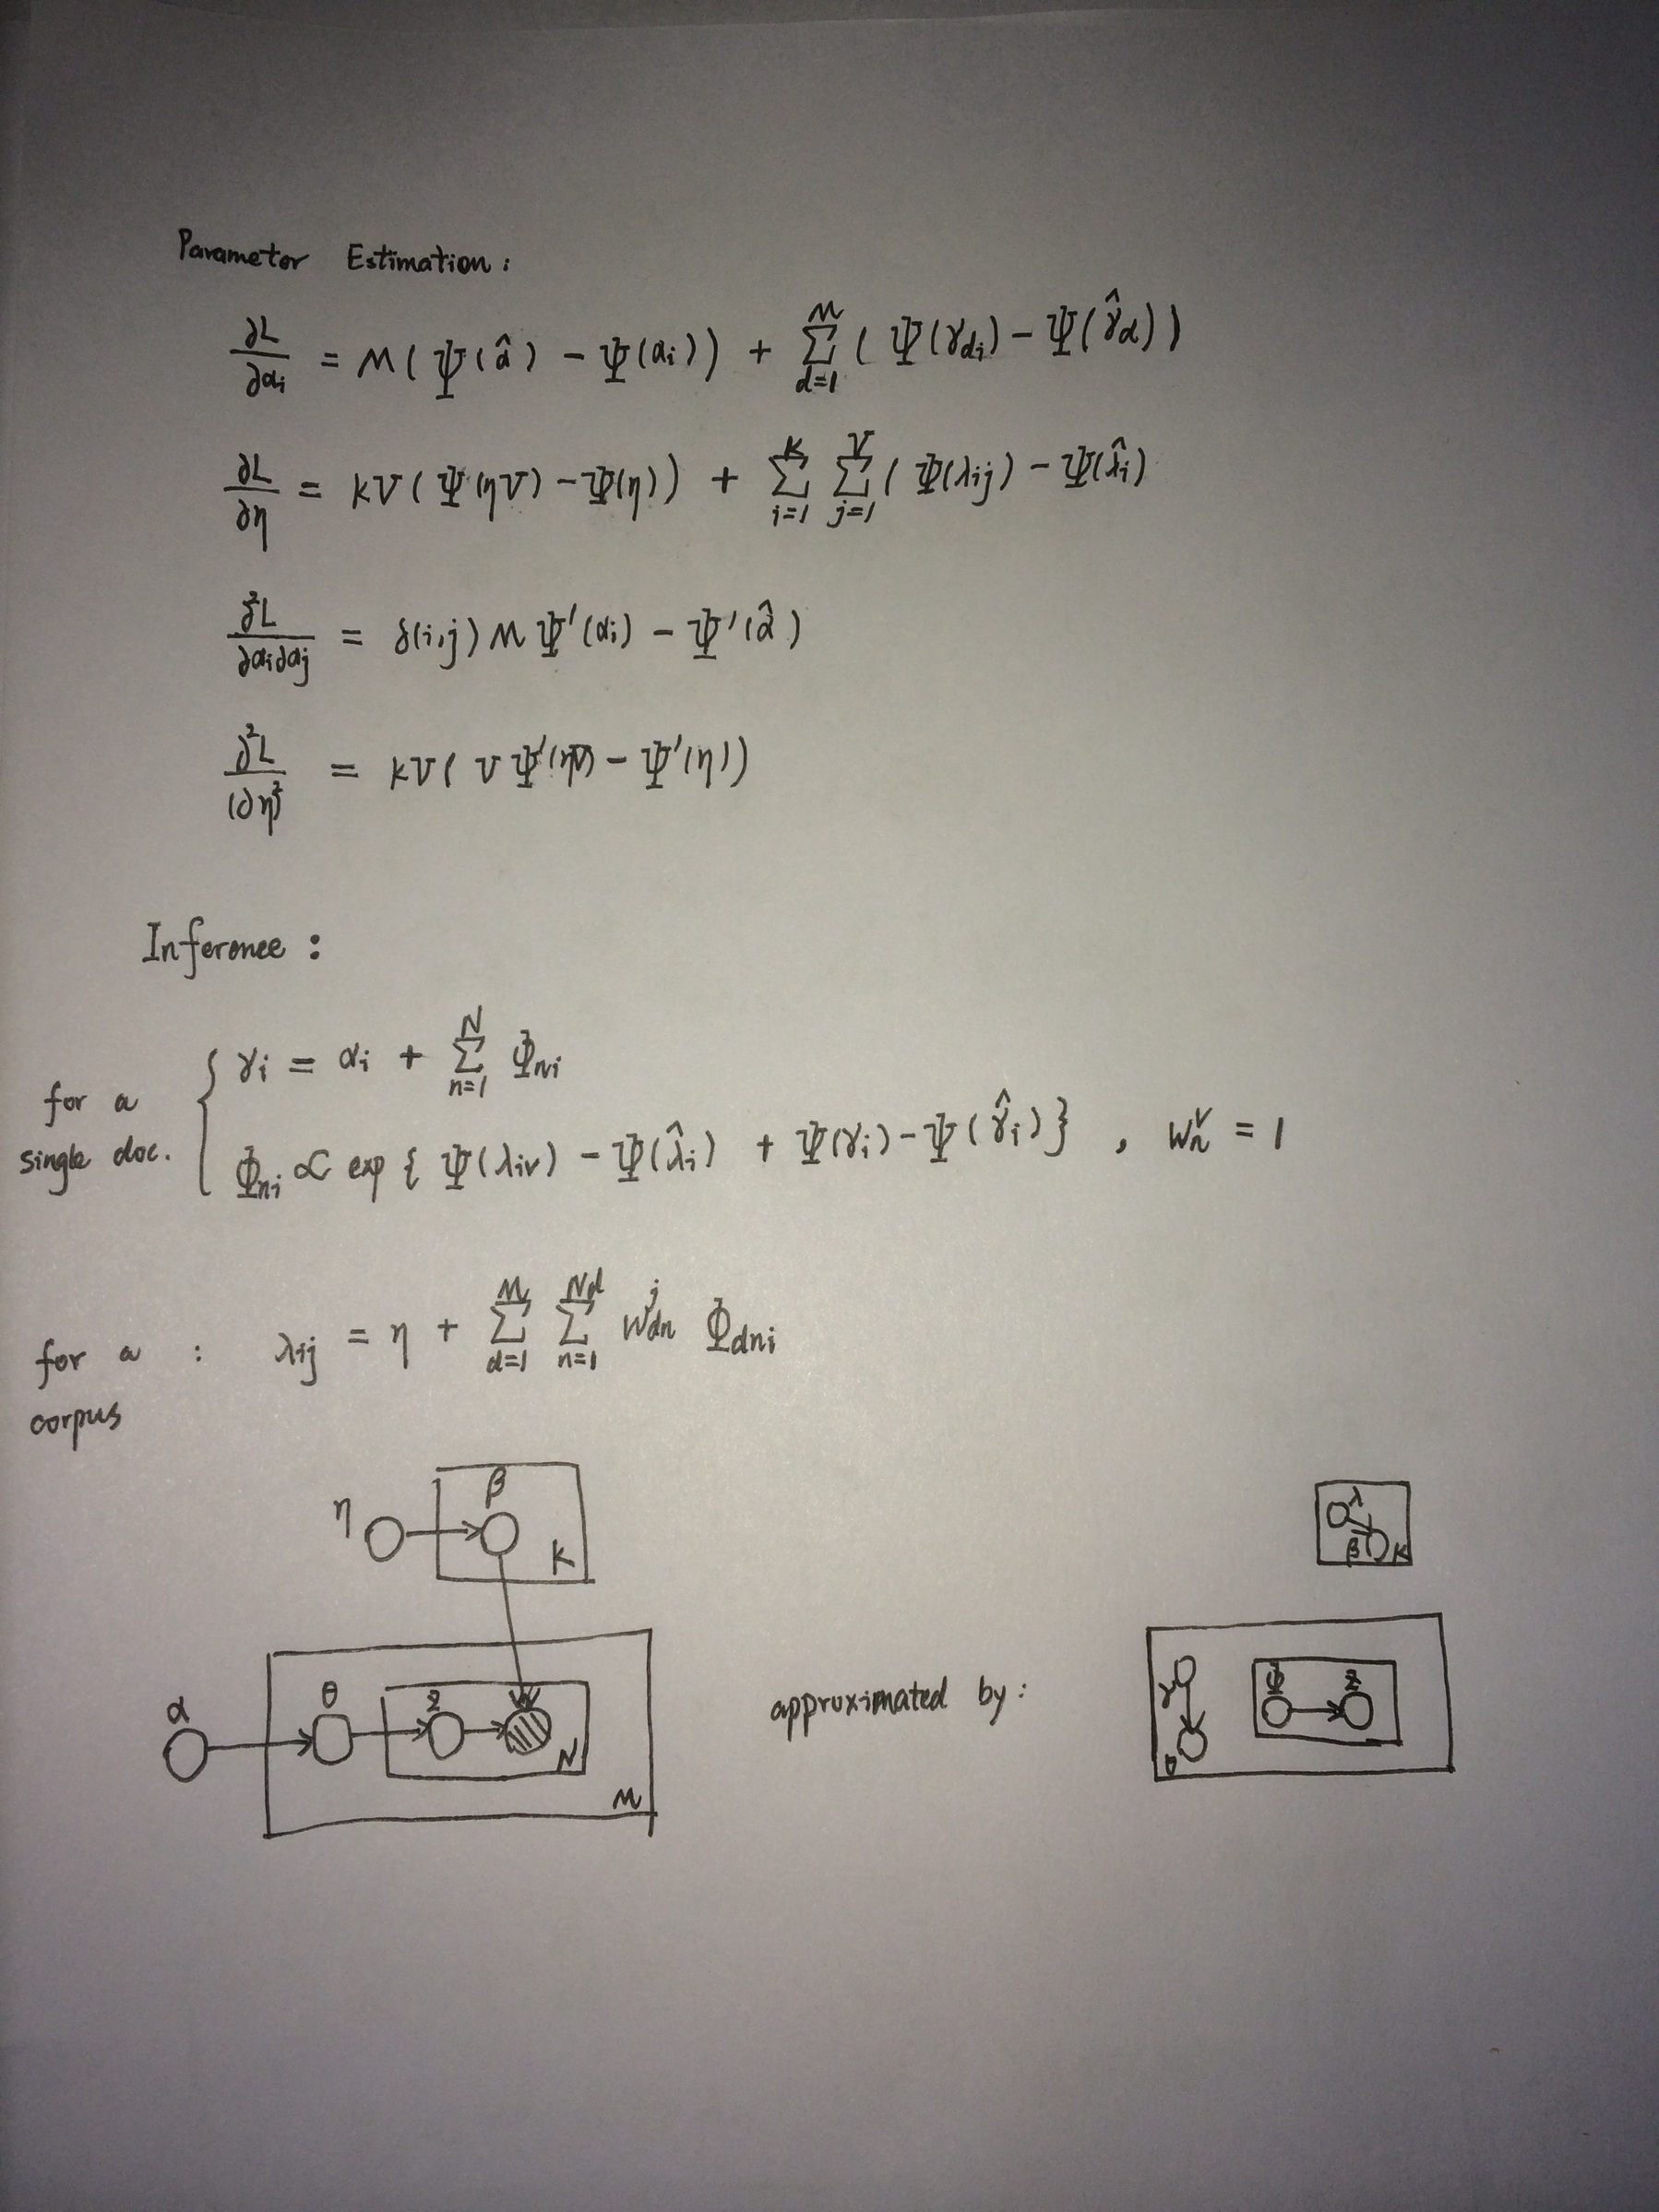 Parameter Estimation:
∂L/∂αi = M(Ψ(α̂) − Ψ(αi)) + Σ_{d=1}^{M} (Ψ(γdi) − Ψ(γ̂d))
∂L/∂η = KV(Ψ(ηV) − Ψ(η)) + Σ_{i=1}^{K} Σ_{j=1}^{V} (Ψ(λij) − Ψ(λ̂i)
∂²L/∂αi∂αj = δ(i,j) M Ψ'(αi) − Ψ'(α̂)
∂²L/(∂η)² = KV(V Ψ'(ηV) − Ψ'(η))
Inference:
for a single doc. { γi = αi + Σ_{n=1}^{N} Φni
Φni ∝ exp{Ψ(λiv) − Ψ(λ̂i) + Ψ(γi) − Ψ(γ̂i)}, w_n^v = 1
for a corpus : λij = η + Σ_{d=1}^{M} Σ_{n=1}^{Nd} w_dn^j Φdni
η β K
α θ z w N M
approximated by:
λ β K
γ θ Φ z